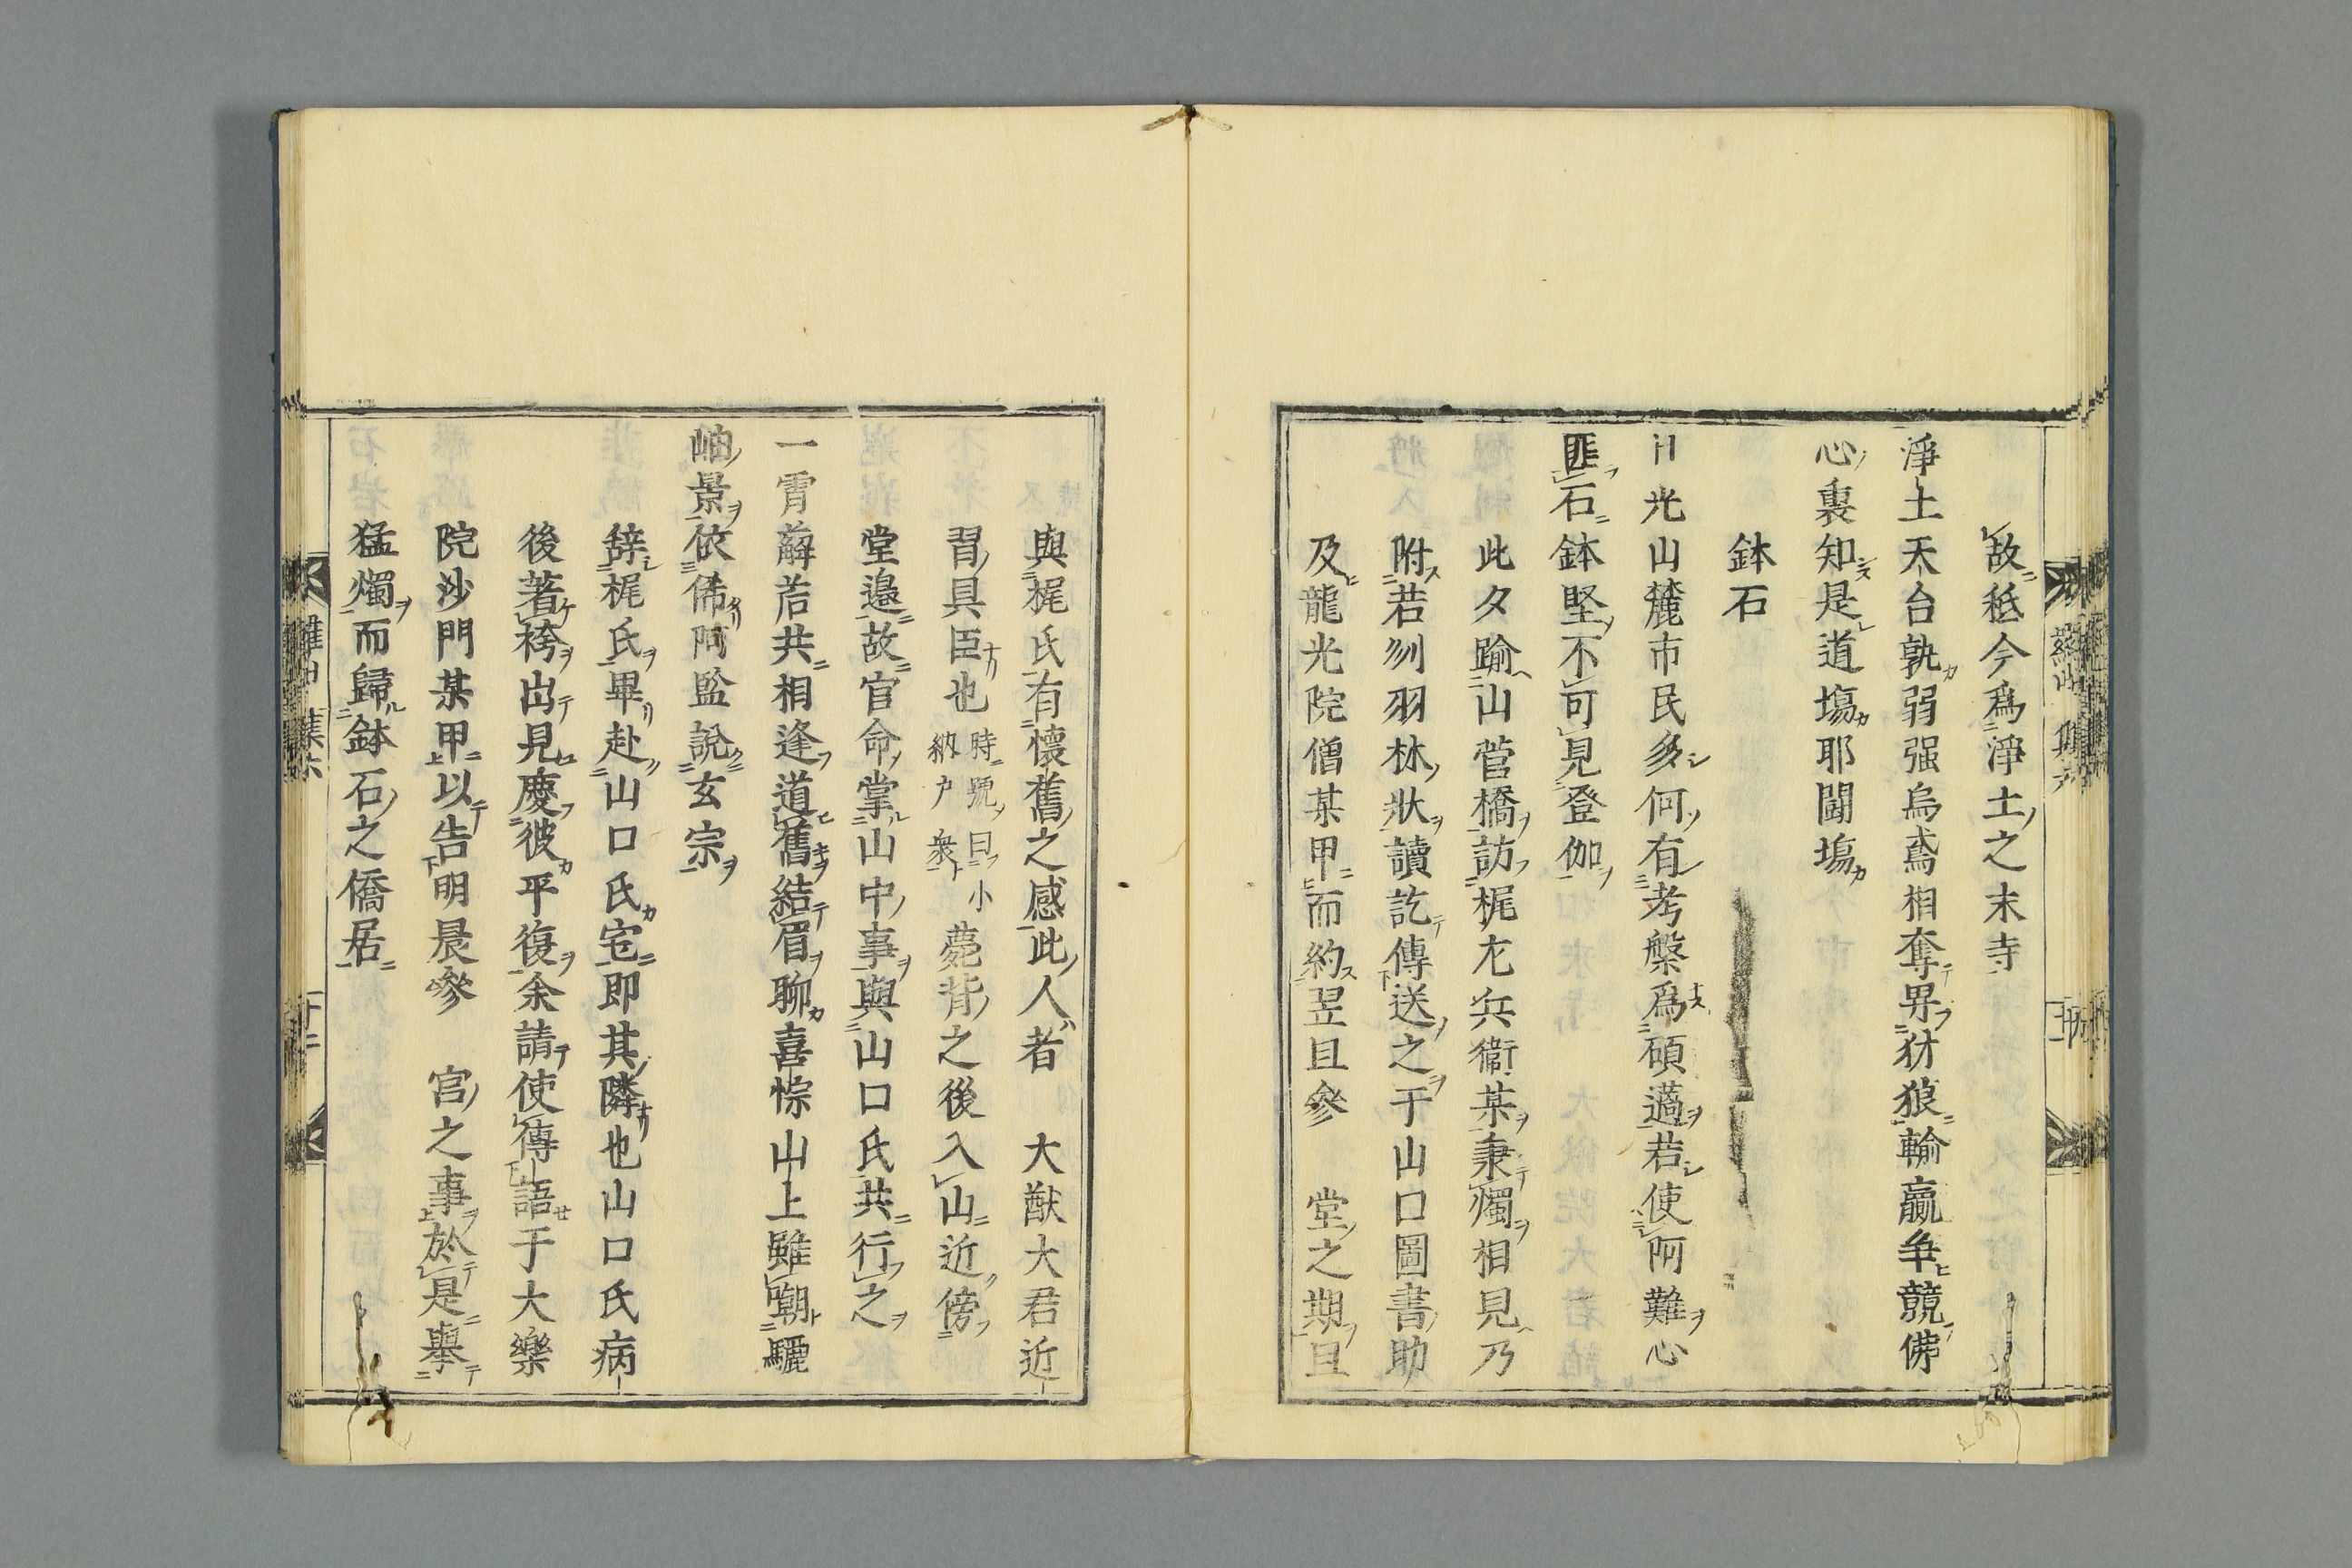 故秪今爲淨土之末寺
淨土天台孰弱强烏鳶相奪畀犲狼輸贏争競佛
心裏知是道塲耶閙塲
鉢石
日光山麓市民多何有考槃爲碩薖若使阿難心
匪石鉢堅不可見登伽
此夕踰山菅橋訪梶尢兵衞某秉燭相見乃
附若刕羽林狀讀訖傳送之于山口圖書助
及龍光院僧某甲而約翌且參 堂之期且
與梶氏有懷舊之感此人者 大猷大君近
習具臣也時號曰小納戶衆薨背之後入山近傍
堂邉故官命掌山中事與山口氏共行之
一霄薢若共相逢道舊結眉聊喜悰山上雖嘲驪
岫景依俙阿監說玄宗
辭梶氏畢赴山口氏宅即其隣也山口氏病
後著袴出見慶彼平復余請使傳語于大樂
院沙門某甲以告明晨參 宮之事於是舉
猛燭而歸鉢石之僑居